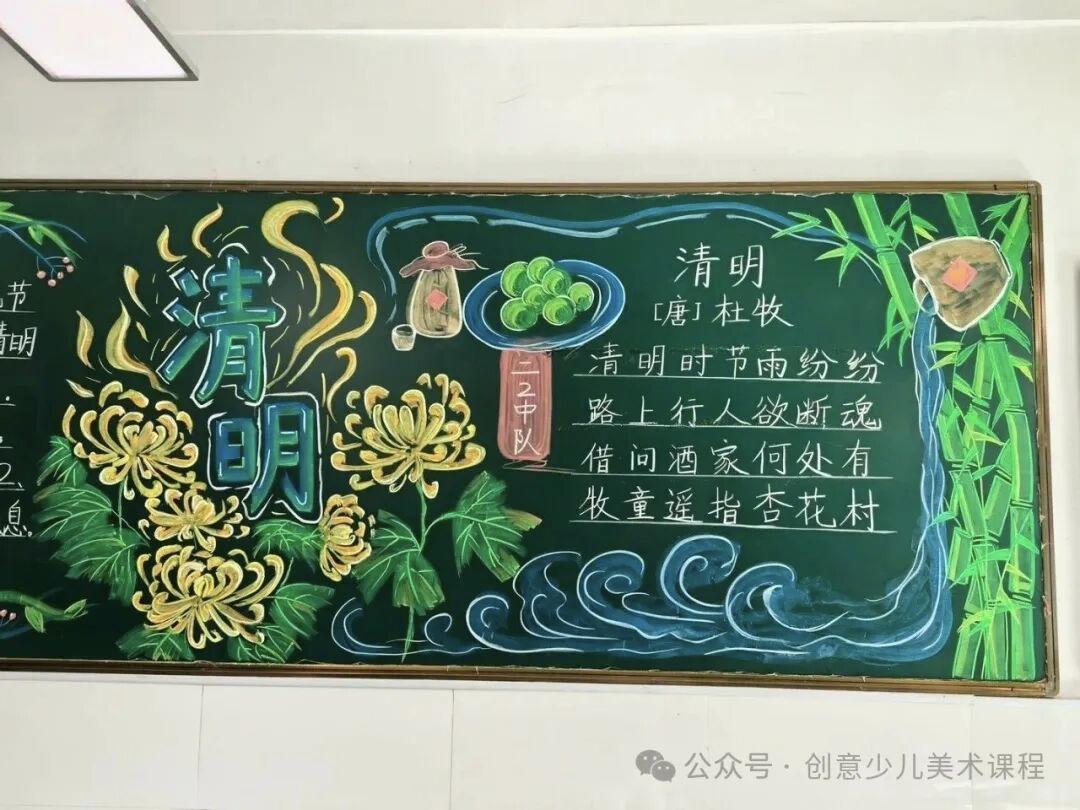 节
清明
2、
息.
清
明
二2中队
清明
[唐]杜牧
清明时节雨纷纷
路上行人欲断魂
借问酒家何处有
牧童遥指杏花村
公众号·创意少儿美术课程